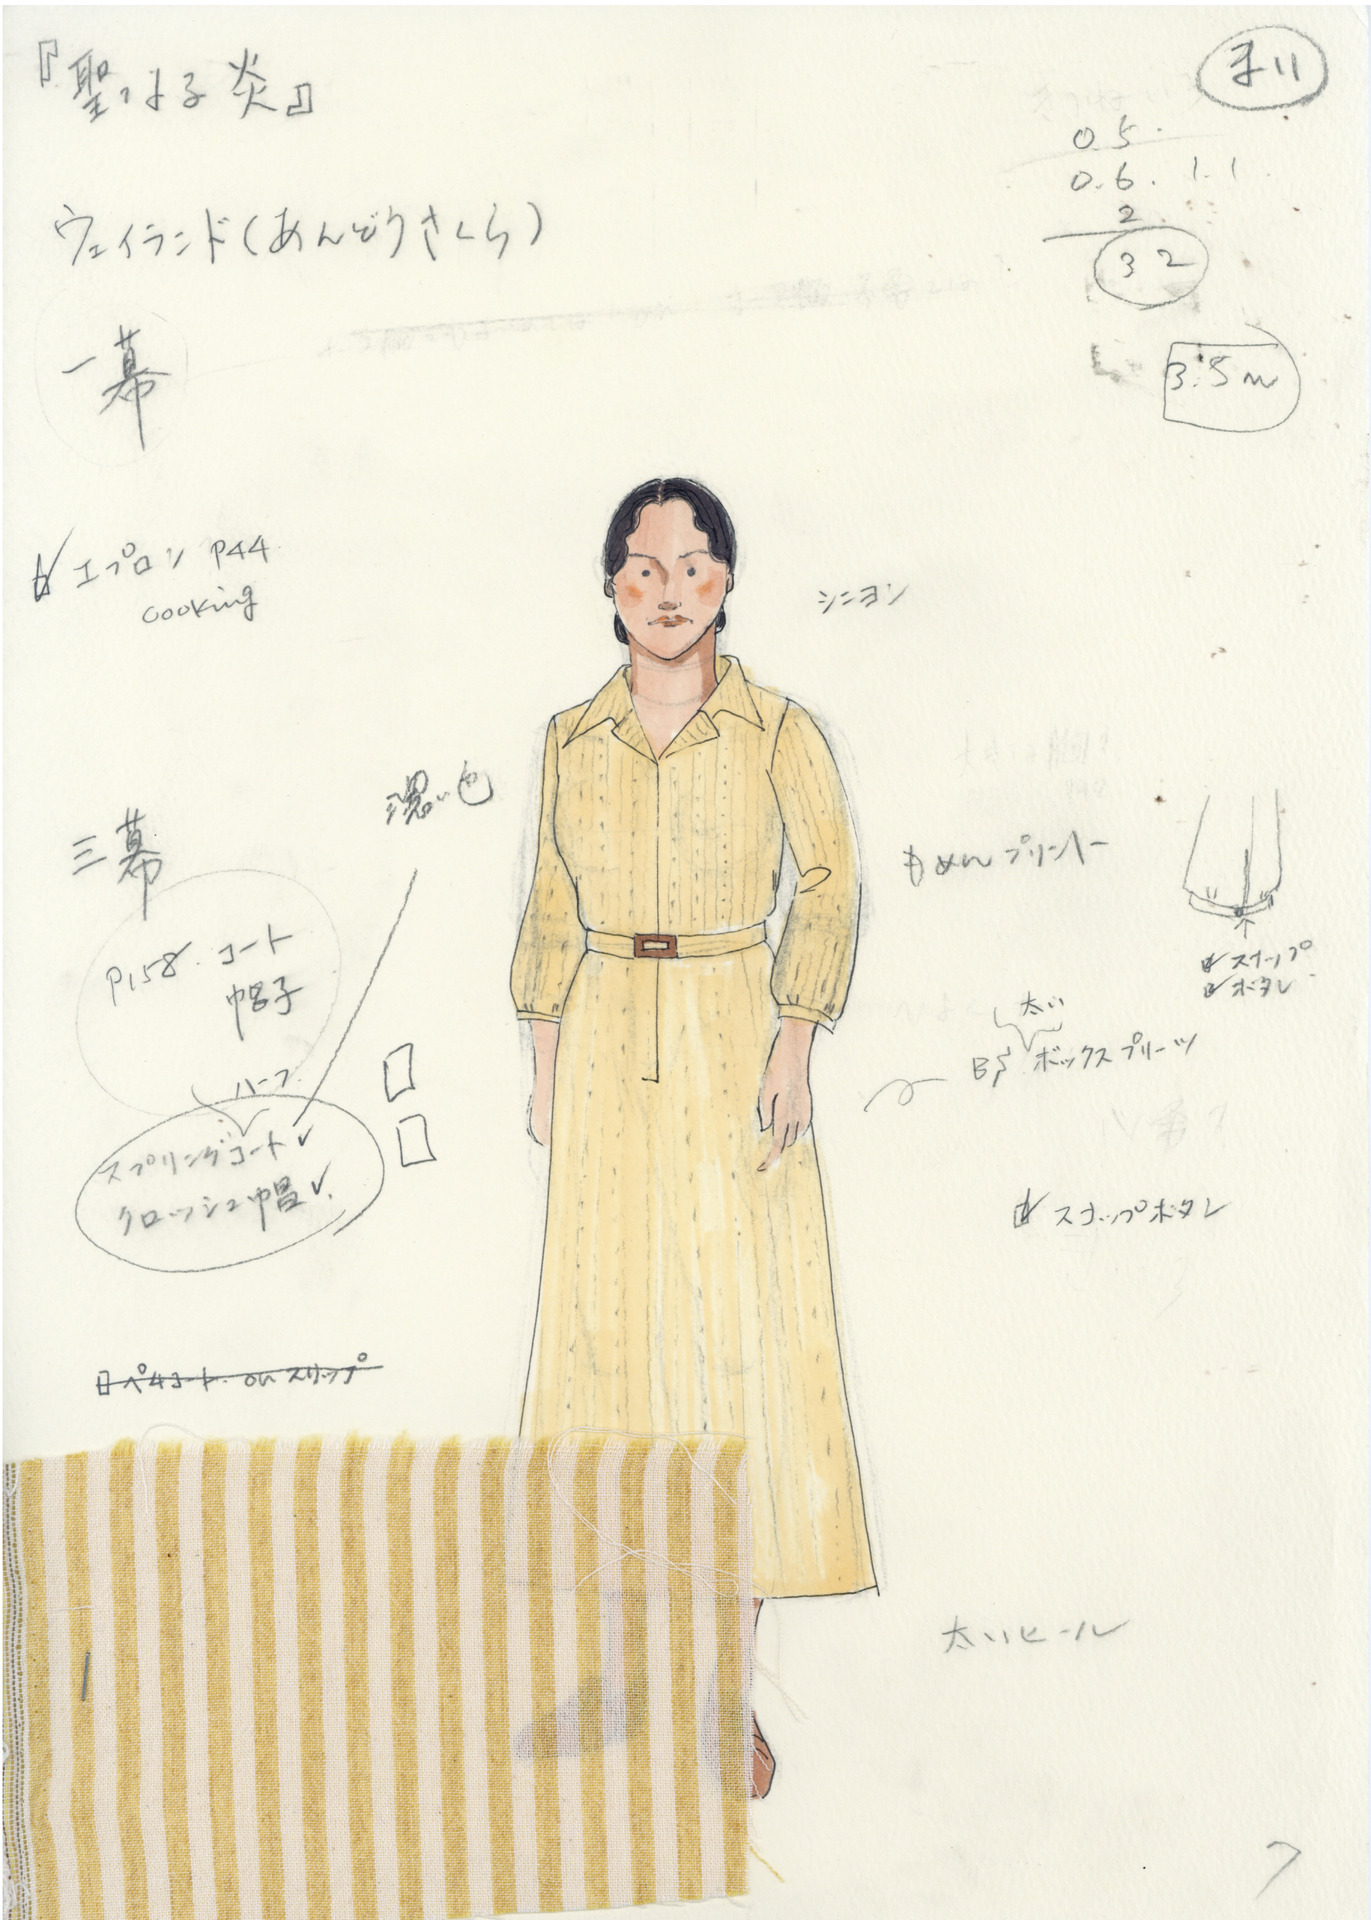 『聖なる炎』
ウェイランド(あんどうさくら)
一幕
エプロン P44
cooking
三幕
濃い色
P158. コート
帽子
ハーフ
スプリングコート
クロッシュ帽
ペチコート ou スリップ
0.5
0.6. 1.1
2
32
3.5m
シニヨン
もめんプリント
スナップ
ボタン
太い
ボックスプリーツ
スナップボタン
太いヒール
7